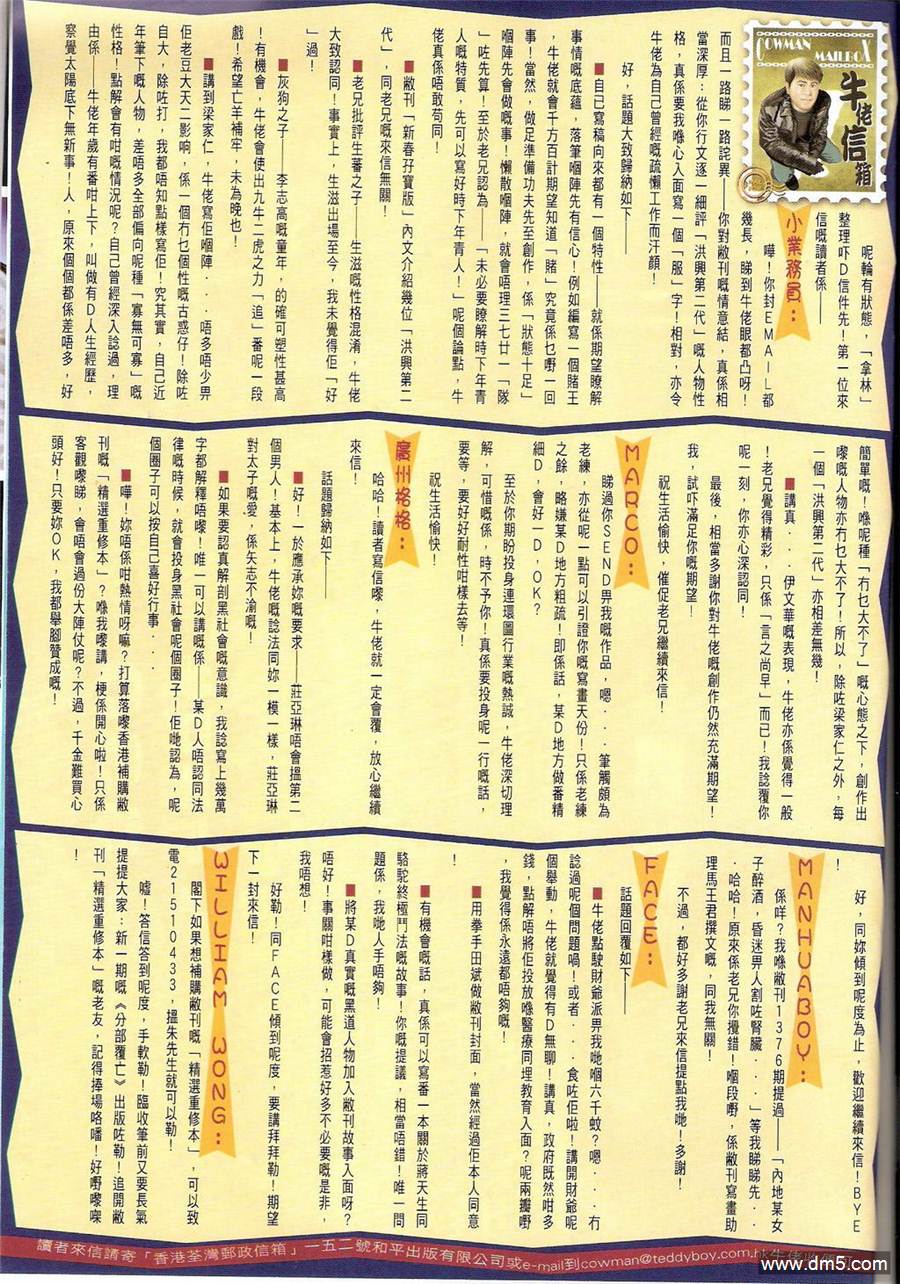 COWMAN
MAILBOX
牛佬信箱
呢輪有狀態，「拿林」
整理吓D信件先！第一位來
信嘅讀者係——
小業務員：
嘩！你封EMAIL都
幾長，睇到牛佬眼都凸呀！
而且一路睇一路詫異——你對敝刊嘅情意結，真係相
當深厚：從你行文逐一細評「洪興第二代」嘅人物性
格，真係要我喺心入面寫一個「服」字！相對，亦令
牛佬為自己曾經嘅疏懶工作而汗顏！
好，話題大致歸納如下——
■自己寫稿向來都有一個特性——就係期望瞭解
事情嘅底蘊，落筆嗰陣先有信心！例如編寫一個賭王
，牛佬就會千方百計期望知道「賭」究竟係乜嘢一回
事！當然，做足準備功夫先至創作，係「狀態十足」
嗰陣先會做嘅事！懶散嗰陣，就會唔理三七廿一「隊
」咗先算！至於老兄認為——「未必要瞭解時下年青
人嘅特質，先可以寫好時下年青人！」呢個論點，牛
佬真係唔敢苟同！
■敝刊「新春孖寶版」內文介紹幾位「洪興第二
代」，同老兄嘅來信無關！
■老兄批評生蕃之子——生滋嘅性格混淆，牛佬
大致認同！事實上，生滋出場至今，我未覺得佢「好
」過！
■灰狗之子——李志高嘅童年，的確可塑性甚高
！有機會，牛佬會使出九牛二虎之力「追」番呢一段
戲！希望亡羊補牢，未為晚也！
■講到梁家仁，牛佬寫佢嗰陣．．．唔多唔少畀
佢老豆大天二影响，係一個冇乜個性嘅古惑仔！除咗
自大，除咗打，我都唔知點樣寫佢！究其實，自己近
年筆下嘅人物，差唔多全部偏向呢種「寡無可寡」嘅
性格！點解會有咁嘅情況呢？自己曾經深入諗過，理
由係——牛佬年歲有番咁上下，叫做有D人生經歷，
察覺太陽底下無新事！人，原來個個都係差唔多，好
簡單嘅！喺呢種「冇乜大不了」嘅心態之下，創作出
嚟嘅人物亦冇乜大不了！所以，除咗梁家仁之外，每
一個「洪興第二代」亦相差無幾！
■講真．．．伊文華嘅表現，牛佬亦係覺得一般
！老兄覺得精彩，只係「言之尚早」而已！我諗覆你
呢一刻，你亦心深認同！
最後，相當多謝你對牛佬嘅創作仍然充滿期望！
我，試吓滿足你嘅期望！
祝生活愉快，催促老兄繼續來信！
MARCO：
睇過你SEND畀我嘅作品，嗯．．．筆觸頗為
老練，亦從呢一點可以引證你嘅寫畫天份！只係老練
之餘，略嫌某D地方粗疏！即係話，某D地方做番精
細D，會好一D，OK？
至於你期盼投身連環圖行業嘅熱誠，牛佬深切理
解，可惜嘅係，時不予你！真係要投身呢一行嘅話，
要等，要好好耐性咁樣去等！
祝生活愉快！
廣州格格：
哈哈！讀者寫信嚟，牛佬就一定會覆，放心繼續
來信！
話題歸納如下——
■好！一於應承妳嘅要求——莊亞琳唔會搵第二
個男人！基本上，牛佬嘅諗法同妳一模一樣，莊亞琳
對太子嘅愛，係矢志不渝嘅！
■如果要認真解剖黑社會嘅意識，我諗寫上幾萬
字都解釋唔嚟！唯一可以講嘅係——某D人唔認同法
律嘅時候，就會投身黑社會呢個圈子！佢哋認為，呢
個圈子可以按自己喜好行事．．．
■嘩！妳唔係咁熱情呀嘛？打算落嚟香港補購敝
刊嘅「精選重修本」？喺我嚟講，梗係開心啦！只係
客觀嚟睇，會唔會過份大陣仗呢？不過，千金難買心
頭好！只要妳OK，我都舉腳贊成嘅！
好，同妳傾到呢度為止，歡迎繼續來信！BYE
！
MANHUABOY：
係咩？我喺敝刊1376期提過——「內地某女
子醉酒，昏迷畀人割咗腎臟．．．」等我睇睇先．．
．哈哈！原來係老兄你攪錯！嗰段嘢，係敝刊寫畫助
理馬王君撰文嘅，同我無關！
不過，都好多謝老兄來信提點我哋！多謝！
FACE：
話題回覆如下——
■牛佬點睇財爺派畀我哋嗰六千蚊？嗯．．．冇
諗過呢個問題喎！或者．．．食咗佢啦！講開財爺呢
個舉動，牛佬就覺得有D無聊！講真，政府既然咁多
錢，點解唔將佢投放喺醫療同埋教育入面？呢兩瓣嘢
，我覺得係永遠都唔夠嘅！
■用拳手田斌做敝刊封面，當然經過佢本人同意
！
■有機會嘅話，真係可以寫番一本關於蔣天生同
駱駝終極鬥法嘅故事！你嘅提議，相當唔錯！唯一問
題係，我哋人手唔夠！
■將某D真實嘅黑道人物加入敝刊故事入面呀？
唔好！事關咁樣做，可能會招惹好多不必要嘅是非，
我唔想！
好勒！同FACE傾到呢度，要講拜拜勒！期望
下一封來信！
WILLIAM WONG：
閣下如果想補購敝刊嘅「精選重修本」，可以致
電21510433，搵朱先生就可以勒！
噓！答信答到呢度，手軟勒！臨收筆前又要長氣
提提大家：新一期嘅《分部覆亡》出版咗勒！追開敝
刊「精選重修本」嘅老友，記得捧場咯噃！好嘢嚟㗎
！
讀者來信請寄「香港荃灣郵政信箱」一五二號和平出版有限公司或e-mail到cowman@teddyboy.com.hk
www.dm5.com